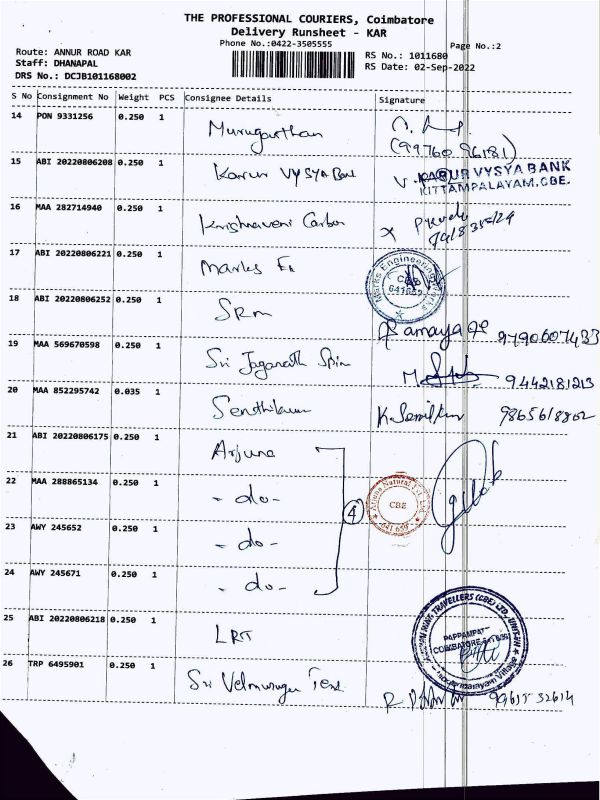 THE PROFESSIONAL COURIERS, Coimbatore
Delivery Runsheet - KAR
Phone No.:0422-3505555
Page No.:2
Route: ANNUR ROAD KAR
RS No.: 1011680
Staff: DHANAPAL
RS Date: 02-Sep-2022
DRS No.: DCJB101168002
S No Consignment No Weight PCS Consignee Details Signature
14 PON 9331256 0.250 1
(99760 96181)
15 ABI 20220806208 0.250 1 Karur VYSYA Bank
KARUR VYSYA BANK
KITTAMPALAYAM, CBE.
16 MAA 282714940 0.250 1 Krishnaveni Carbon
17 ABI 20220806221 0.250 1 Marks En
Marks Engineering Works
CBE
641659
18 ABI 20220806252 0.250 1 SRm
9790607433
19 MAA 569670598 0.250 1 Sri Jaganath Spin
9442181213
20 MAA 852295742 0.035 1 Senthilkum
K. Senthilkum 9865618802
21 ABI 20220806175 0.250 1 Arjuna
22 MAA 288865134 0.250 1 - do -
Arjuna Natural Pvt. Ltd.
CBE
641 659
4
23 AWY 245652 0.250 1 - do -
24 AWY 245671 0.250 1 - do -
25 ABI 20220806218 0.250 1 LRT
TRAVELLERS (CBE) LTD.
PAPPAMPATTI
COIMBATORE
Village
26 TRP 6495901 0.250 1 Sri Velmurugan Tex